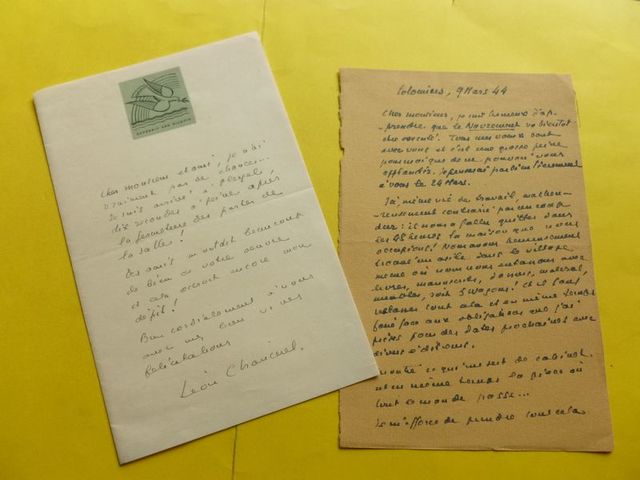 Cher monsieur et ami, je n'ai
vraiment pas de chance...
Je suis arrivé à Pleyel,
dix secondes à peine après
la fermeture des portes de
la salle !
Des amis m'ont dit beaucoup
de bien de votre œuvre
et cela accroît encore mon
dépit !
Bien cordialement à vous
avec mes bien vives
félicitations
Léon Chancerel.
Colomiers, 9 Mars 44
Cher monsieur, je suis heureux d'ap-
-prendre que le Navrement va bientôt
être exécuté. Tous mes vœux sont
avec vous et c'est une grosse peine
pour moi que de ne pouvoir vous
applaudir. Je penserai
à vous le 24 Mars.
Ici, même vie de travail, malheu-
-reusement contrariée par
il nous a fallu quitter dans
les 48 heures la maison que nous
occupions. Nous avons heureusement
trouvé un asile dans le village
même où nous nous entassons avec
livres, manuscrits, matériel,
meubles, soit 3 wagons ! et il faut
cela et en même temps
faire face aux obligations que j'ai
prises pour des dates prochaines avec
divers éditeurs.
ce qui me sert de cabinet
est en même temps la pièce où
tout le monde passe...
Je m'efforce de prendre tout cela